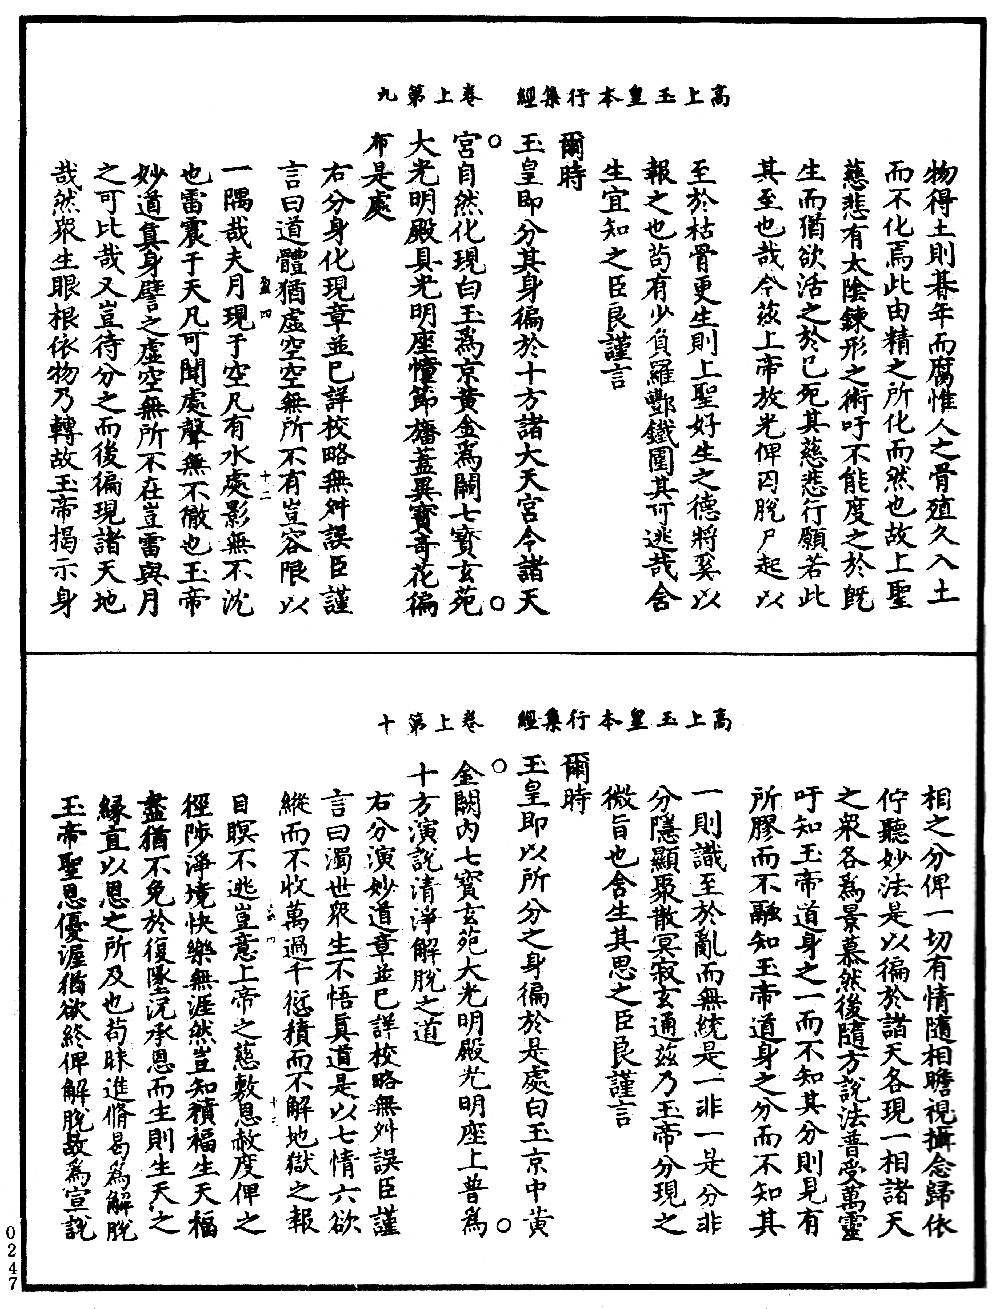 高上玉皇本行集經　卷上第九
物得土則朞年而腐惟人之骨殖久入土
而不化焉此由精之所化而然也故上聖
慈悲有太陰鍊形之術吁不能度之於旣
生而猶欲活之於已死其慈悲行願若此
其至也哉今茲上帝放光俾囚脫尸起以
至於枯骨更生則上聖好生之德將奚以
報之也茍有少負羅酆鐵圍其可逃哉含
生宜知之臣良謹言
爾時
玉皇即分其身徧於十方諸大天宮令諸天
○宮自然化現白玉爲京黃金爲闕七寶玄苑○
大光明殿具光明座幢節旛蓋異寶奇花徧
布是處
右分身化現章並已詳校略無舛誤臣謹
言曰道體猶虛空空無所不有豈容限以
一隅哉夫月現于空凡有水處影無不沈
也雷震于天凡可聞處聲無不徹也玉帝
妙道真身譬之虛空無所不在豈雷與月
之可比哉又豈待分之而後徧現諸天地
哉然眾生眼根依物乃轉故玉帝揭示身
高上玉皇本行集經　卷上第十
相之分俾一切有情隨相瞻視攝念歸依
佇聽妙法是以徧於諸天各現一相諸天
之衆各爲景慕然後隨方說法普受萬靈
吁知玉帝道身之一而不知其分則見有
所膠而不融知玉帝道身之分而不知其
一則識至於亂而無統是一非一是分非
分隱顯聚散冥寂玄通茲乃玉帝分現之
微旨也含生其思之臣良謹言
爾時
玉皇即以所分之身徧於是處白玉京中黃
○金闕內七寶玄苑大光明殿光明座上普爲○
十方演說清淨解脫之道
右分演妙道章並已詳校略無舛誤臣謹
言曰濁世眾生不悟眞道是以七情六欲
縱而不收萬過千愆積而不解地獄之報
目瞑不逃豈意上帝之慈敷恩赦度俾之
徑陟淨境快樂無涯然豈知積福生天福
盡猶不免於復墜沉承恩而生則生天之
緣直以恩之所及也茍昧進脩曷爲解脫
玉帝聖恩優渥猶欲終俾解脫故爲宣說
0247